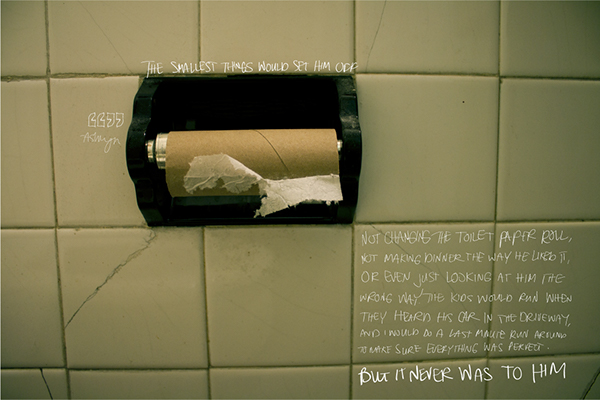 THE SMALLEST THINGS WOULD SET HIM OFF
NOT CHANGING THE TOILET PAPER ROLL,
NOT MAKING DINNER THE WAY HE LIKED IT,
OR EVEN JUST LOOKING AT HIM THE
WRONG WAY THE KIDS WOULD RUN WHEN
THEY HEARD HIS CAR IN THE DRIVEWAY,
AND I WOULD DO A LAST MINUTE RUN AROUND
TO MAKE SURE EVERYTHING WAS PERFECT.
BUT IT NEVER WAS TO HIM